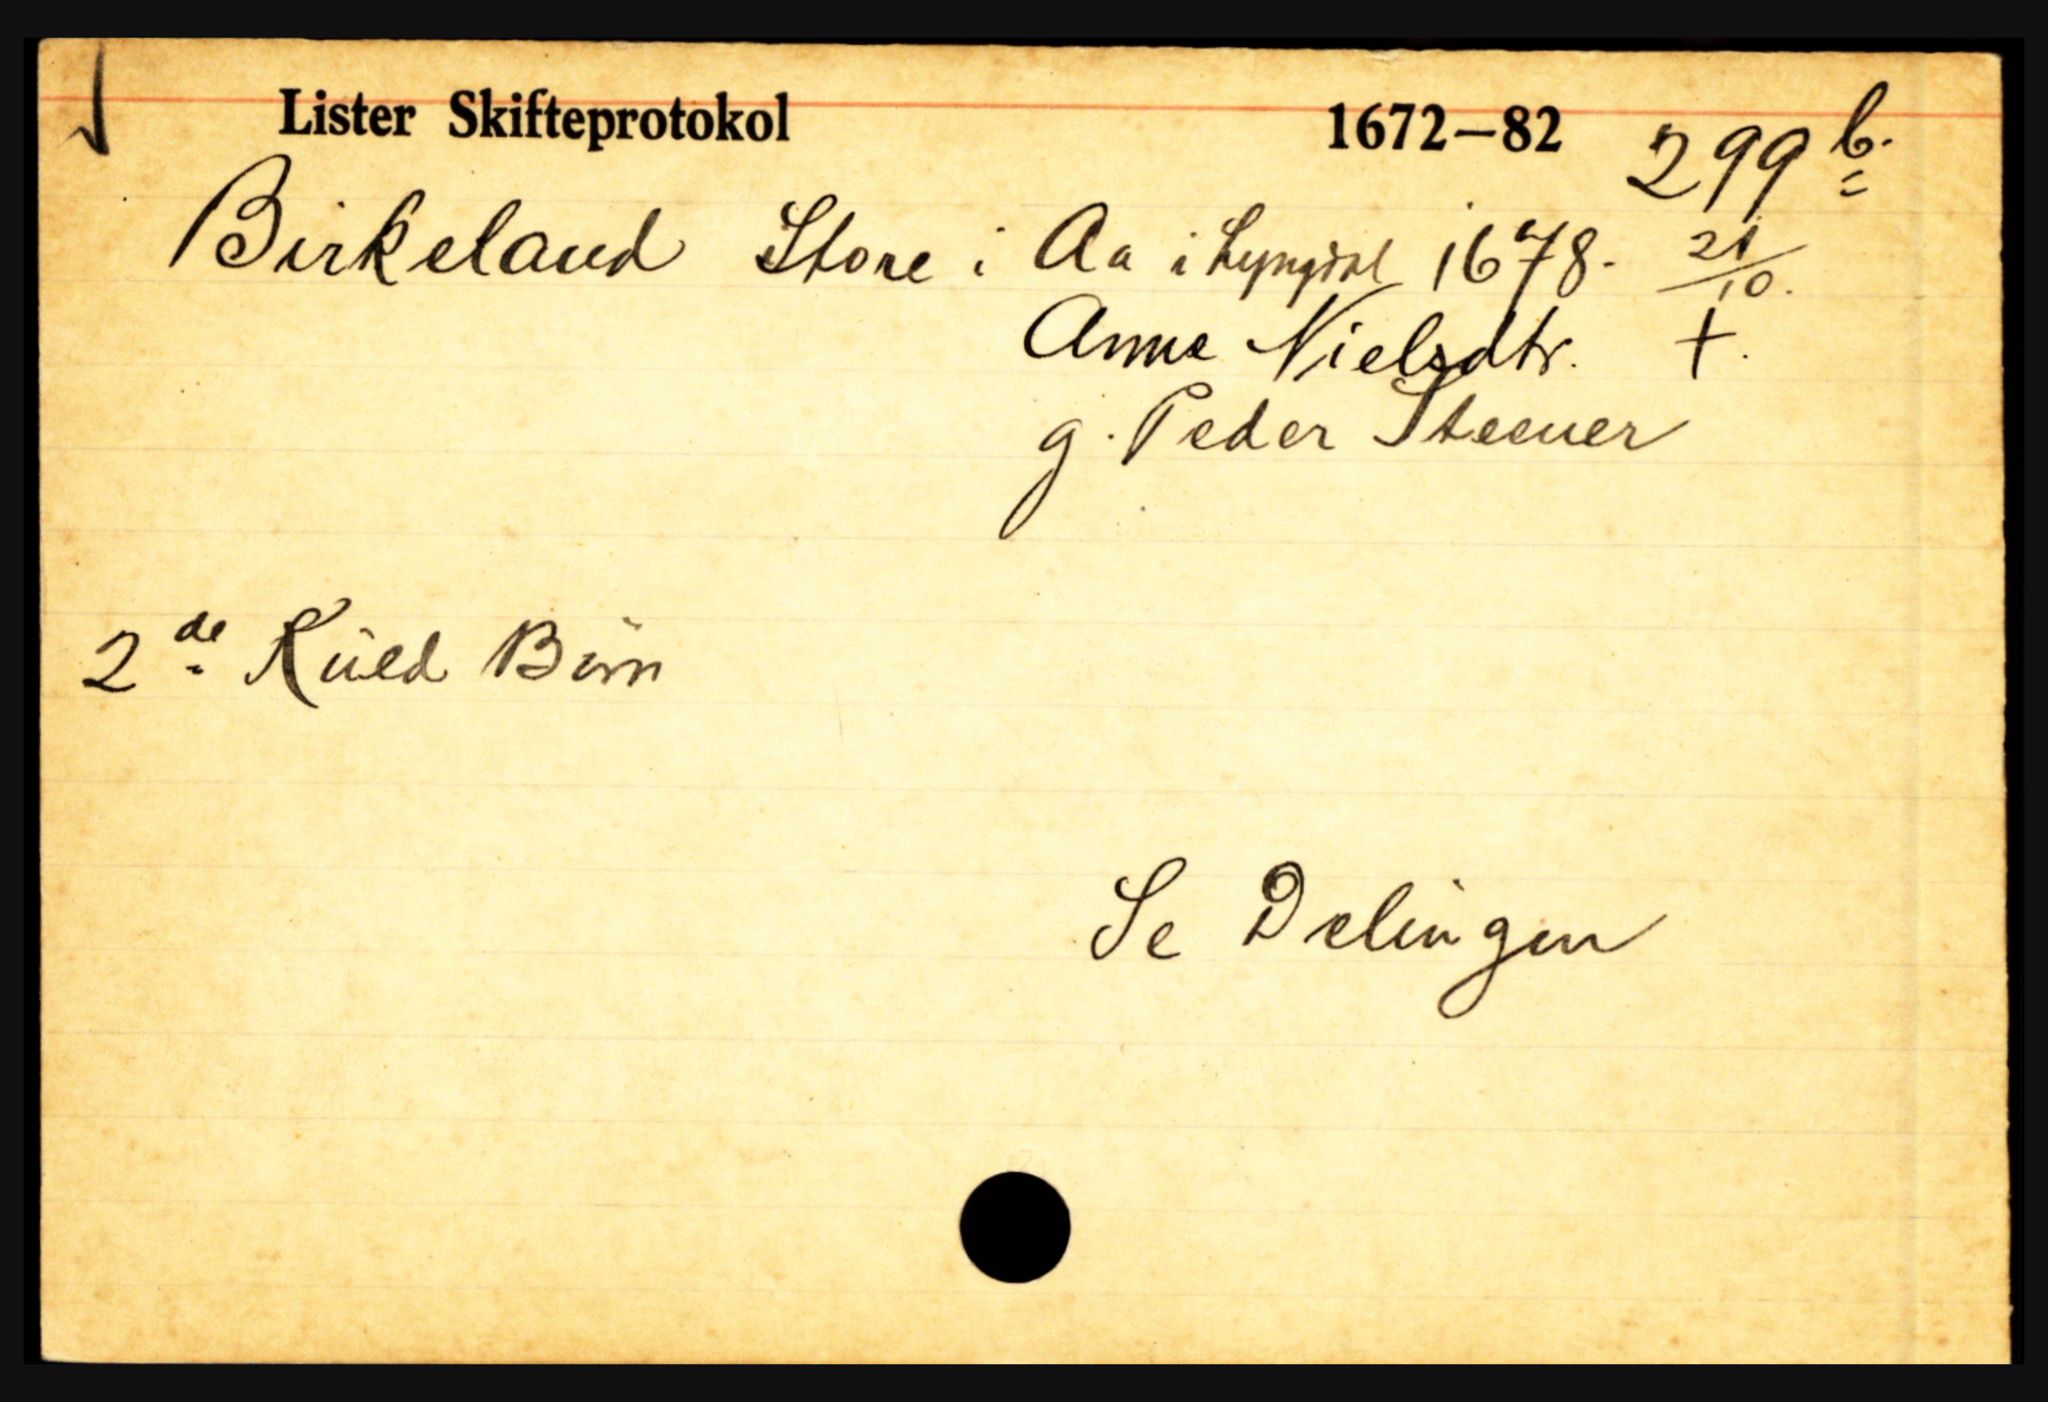 Lister Skifteprotokol 1672—82 299 b.
Birkeland Store i Aa i Lyngdal 1678. 21/10.
Anne Nielsdtr. †.
g. Peder Steener
2 de Kuld Børn
Se Delingen